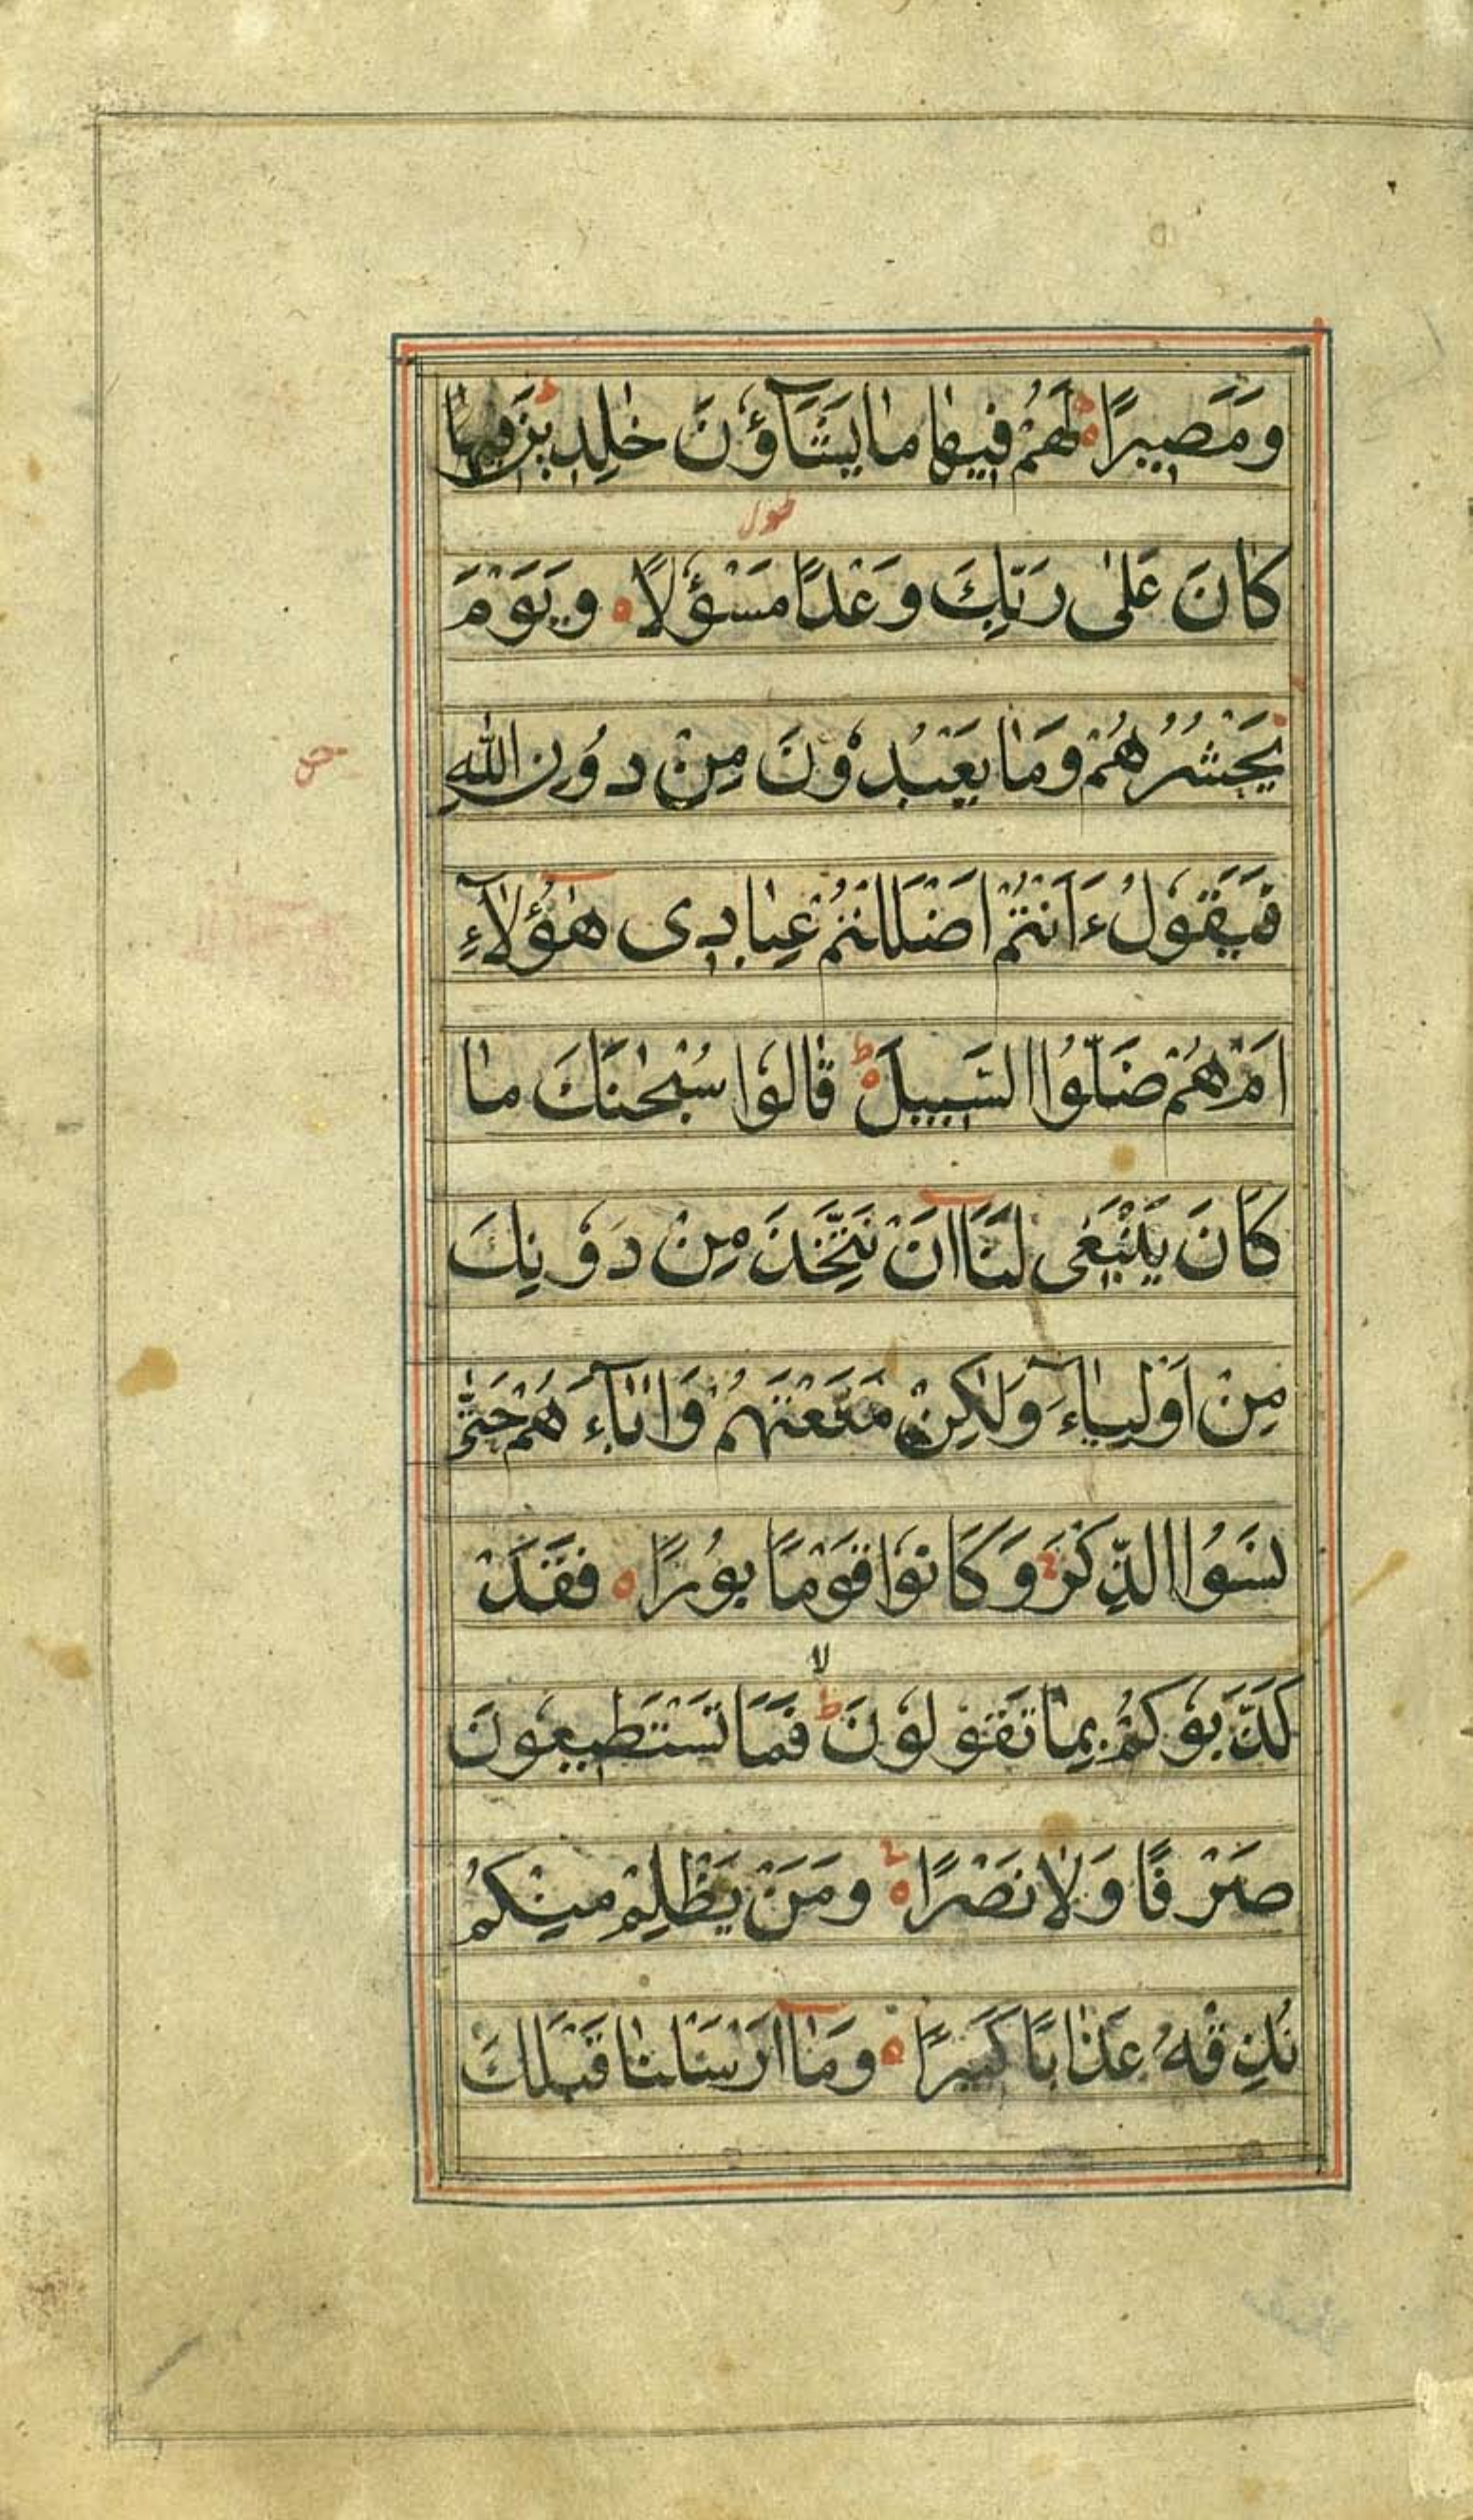 وَمَصِيرًا ۙ لَهُمْ فِيهَا مَا يَشَآؤُنَ خٰلِدِينَ فِيهَا
طول
كَانَ عَلٰى رَبِّكَ وَعْدًا مَسْؤُلًا ہ وَيَوْمَ
يَحْشُرُهُمْ وَمَا يَعْبُدُونَ مِنْ دُونِ اللّٰهِ
فَيَقُولُ ءَاَنْتُمْ اَضْلَلْتُمْ عِبَادِى هٰٓؤُلَآءِ
اَمْ هُمْ ضَلُّوا السَّبِيلَ ہ ط قَالُوا سُبْحٰنَكَ مَا
كَانَ يَنْبَغِى لَنَآ اَنْ نَتَّخِذَ مِنْ دُونِكَ
مِنْ اَوْلِيَآءَ وَلٰكِنْ مَتَّعْتَهُمْ وَاٰبَآءَهُمْ حَتّٰى
نَسُوا الذِّكْرَ ج وَكَانُوا قَوْمًا بُورًا ہ فَقَدْ
لا
كَذَّبُوكُمْ بِمَا تَقُولُونَ ط فَمَا تَسْتَطِيعُونَ
صَرْفًا وَلَا نَصْرًا ہ ج وَمَنْ يَظْلِمْ مِنْكُمْ
نُذِقْهُ عَذَابًا كَبِيرًا ہ وَمَآ اَرْسَلْنَا قَبْلَكَ